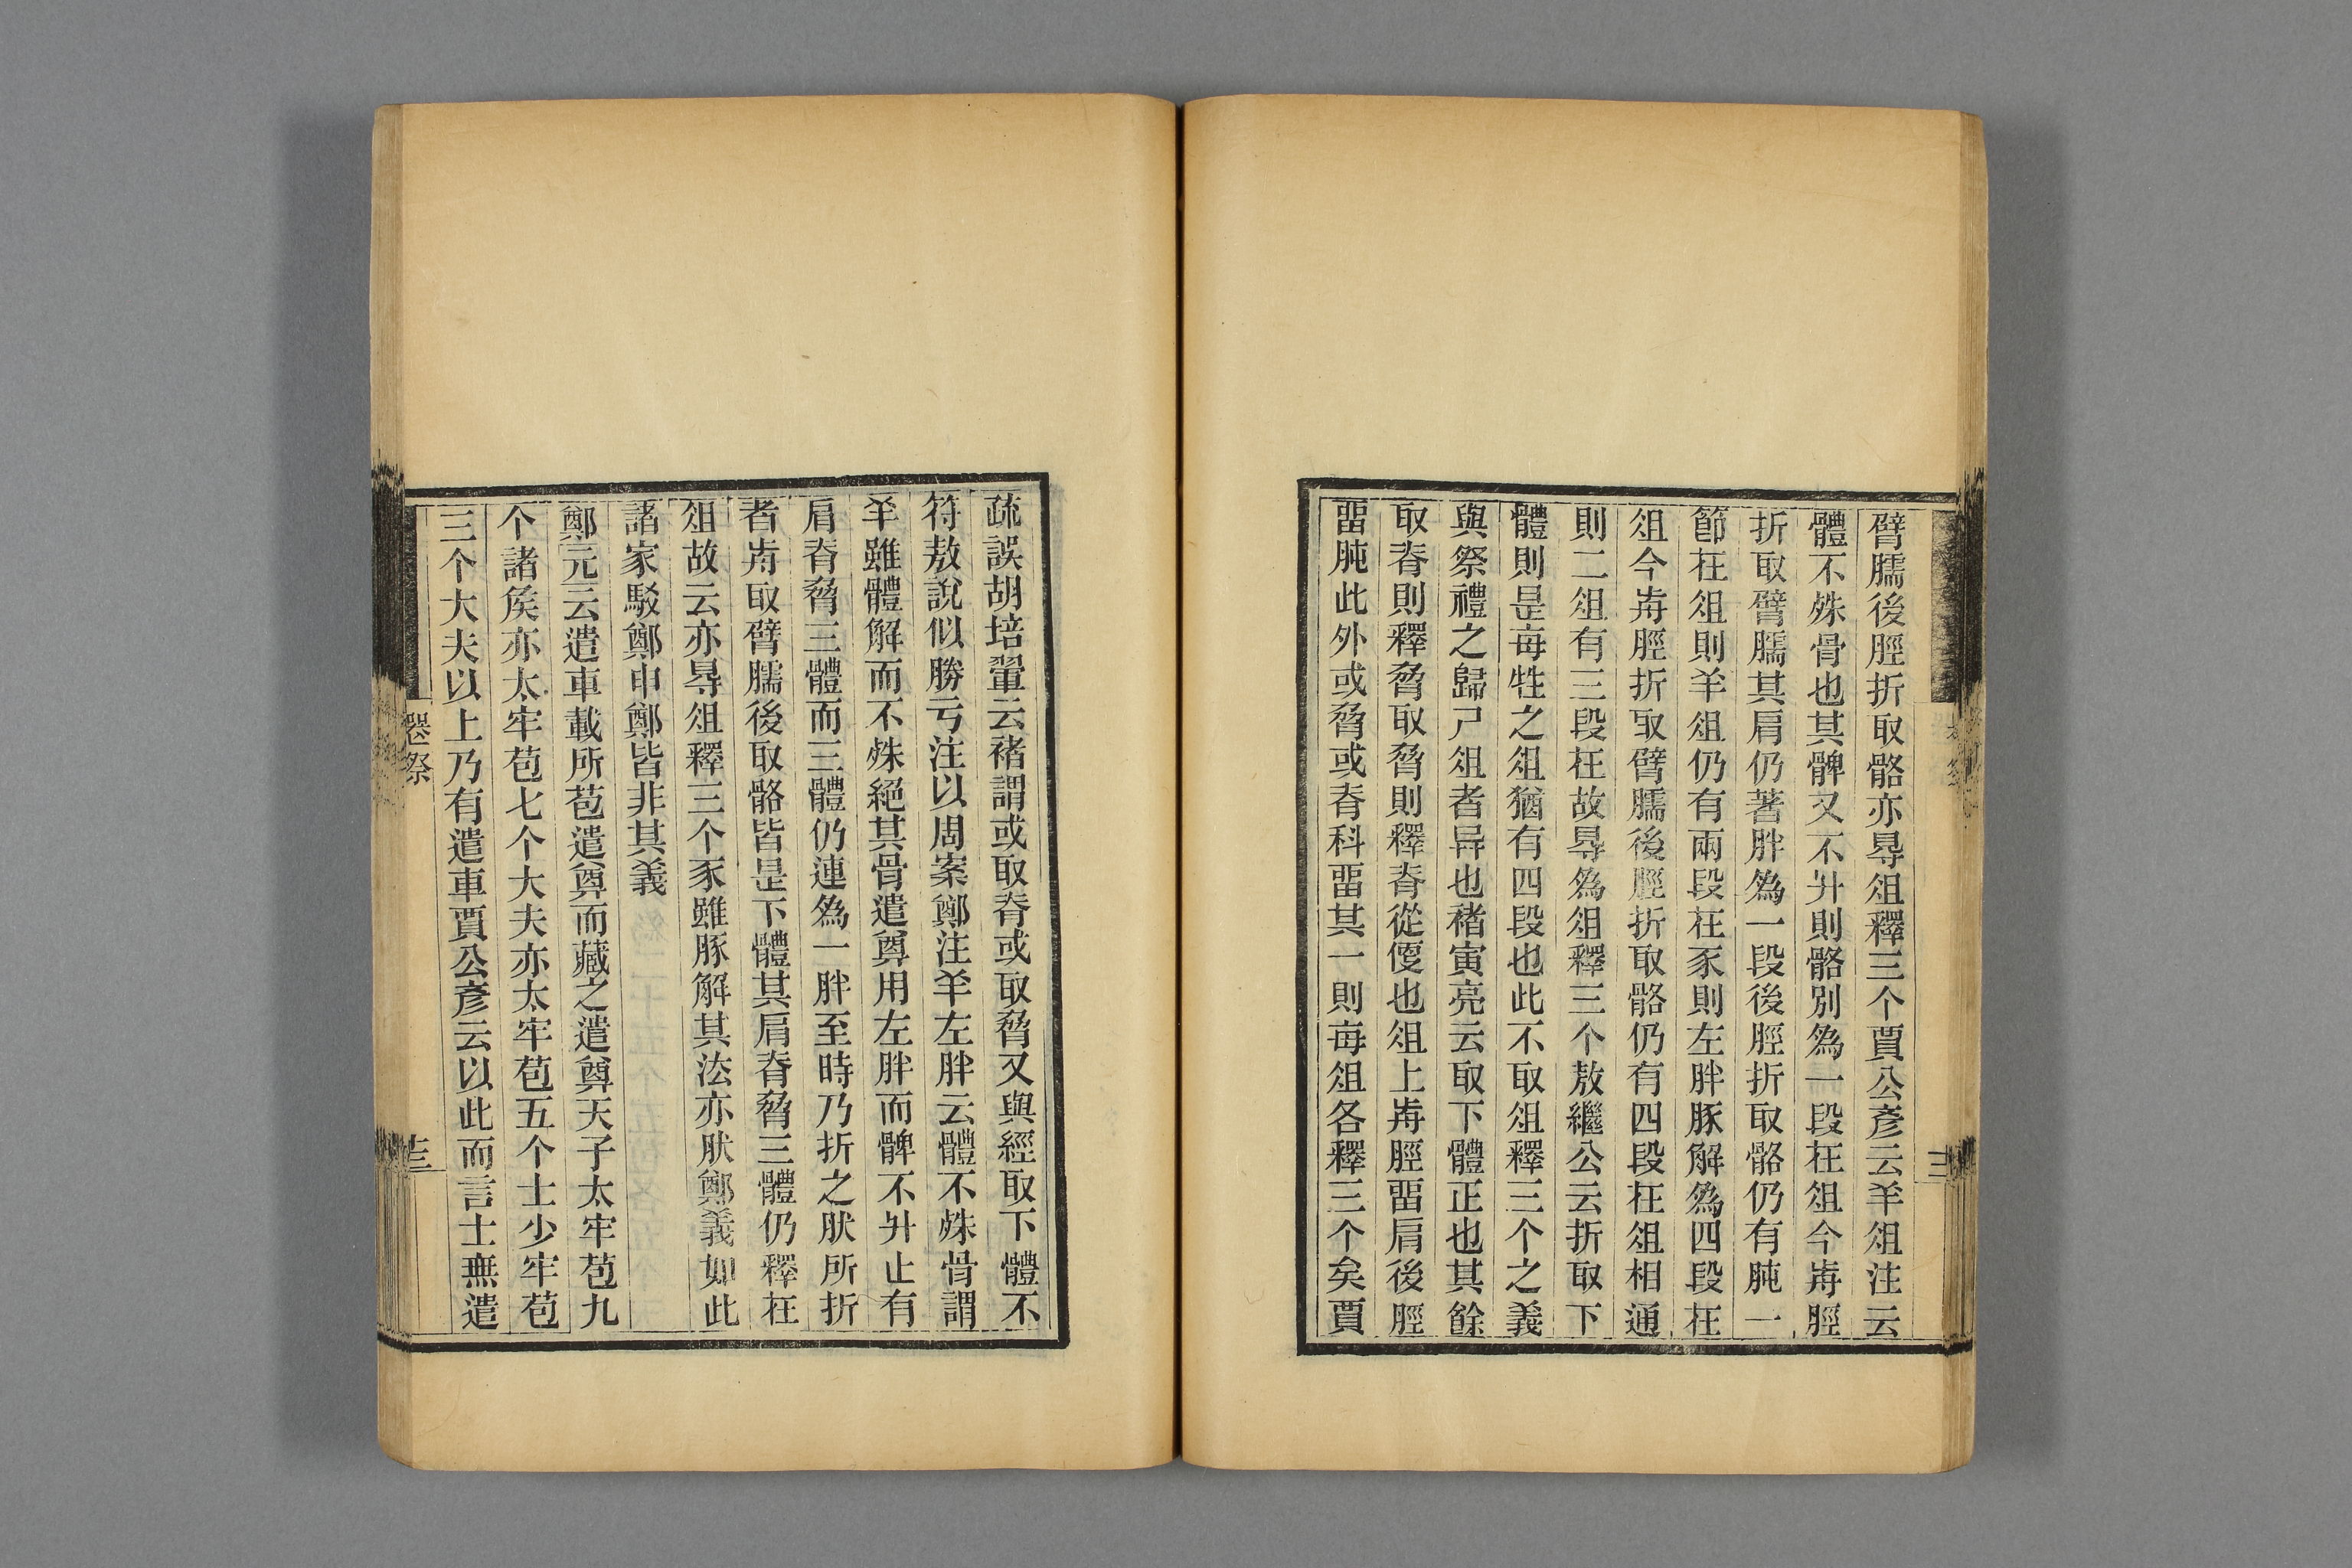 臂臑後脛折取骼亦㝵俎釋三个賈公彥云羊俎注云
體不殊骨也其髀又不升則骼別爲一段在俎今歬脛
折取臂臑其肩仍著胖爲一段後脛折取骼仍有肫一
節在俎則羊俎仍有兩段在豕則左胖豚解爲四段在
俎今歬脛折取臂臑後脛折取骼仍有四段在俎相通
則二俎有三段在故㝵爲俎釋三个敖繼公云折取下
體則是每牲之俎猶有四段也此不取俎釋三个之義
與祭禮之歸尸俎者異也褚寅亮云取下體正也其餘
取脊則釋脅取脅則釋脊從便也俎上歬脛畱肩後脛
畱肫此外或脅或脊科畱其一則每俎各釋三个矣賈
疏誤胡培翬云褚謂或取脊或取脅又與經取下體不
符敖說似勝亏注以周案鄭注羊左胖云體不殊骨謂
羊雖體解而不殊絕其骨遣奠用左胖而髀不升止有
肩脊脅三體而三體仍連爲一胖至時乃折之肰所折
者歬取臂臑後取骼皆是下體其肩脊脅三體仍釋在
俎故云亦㝵俎釋三个豕雖豚解其法亦肰鄭義如此
諸家駁鄭申鄭皆非其義
鄭元云遣車載所苞遣奠而藏之遣奠天子太牢苞九
个諸矦亦太牢苞七个大夫亦太牢苞五个士少牢苞
三个大夫以上乃有遣車賈公彥云以此而言士無遣